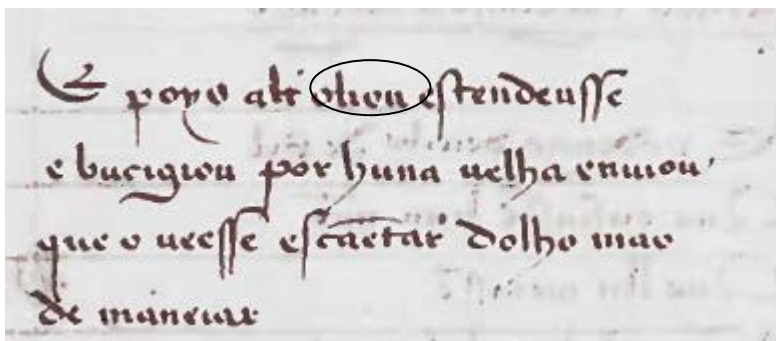 E poys ali oliou estendeusse
e bucigiou por huna uelha enuiou
que o ueesse escaetar dolho mao
de maneiar